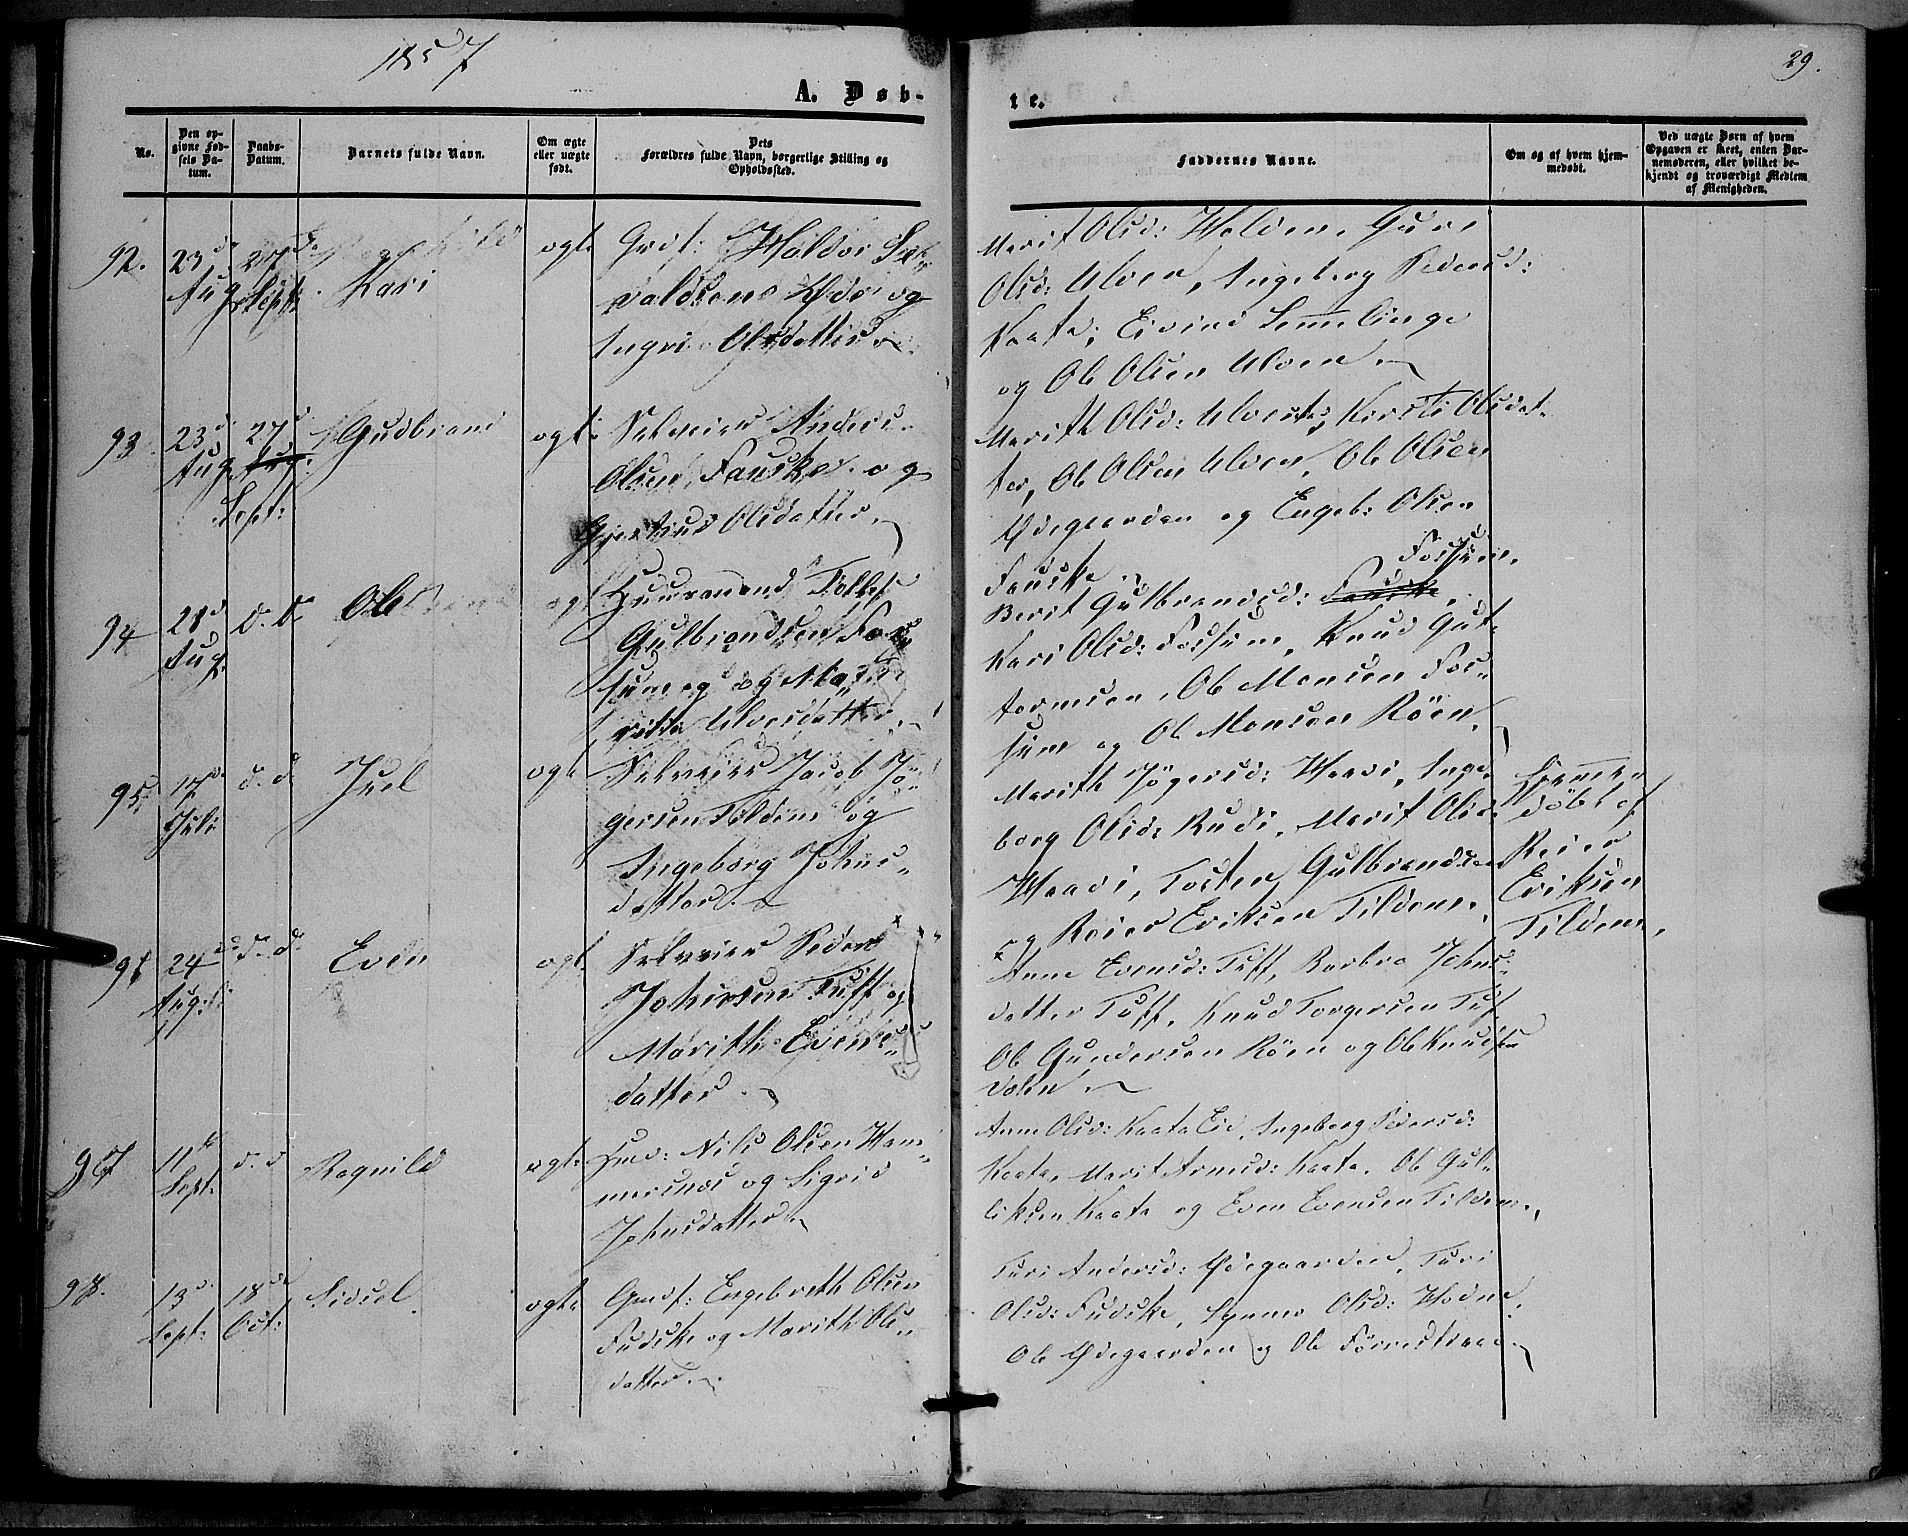 1857
29.
A. Døb-
te.
No.
Den op-
givne Fød-
sels Da-
tum.
Daabs-
Datum.
Barnets fulde Navn.
Om ægte
eller uægte
født.
Dets
Forældres fulde Navn, borgerlige Stilling og
Opholdssted.
Faddernes Navne.
Om og af hvem hjem-
medøbt.
Ved uægte Børn af hvem
Opgaven er skeet, enten Bar-
nemoderen, eller hvilket be-
kjendt og troværdigt Medlem
af Menigheden.
92.
23d
Aug
27d
Sept:
Kari
ægte
Haldor
valdsens og
Ingri Olsdatter
Marit Olsd: Guri
Olsd: Ulven, Ingeborg Pedersd:
Kaata, Eivind
og Ole Olsen Ulven
93.
23d
Aug
27d
Aug:
Sept:
Gudbrand
ægte
Selveier Anders
Olsen Fauske og
Gjertrud Olsdatter
Marith Olsd: Ulven, Kirsti Olsdat-
ter, Ole Olsen Ulven, Ole Olsen
Ødegaarden og Engeb: Olsen
Fauske
94
28d
Aug
d. d.
Ole
ægt
Huusmand
Gulbrandsen Fos-
sum og
Ulvesdatter
Fossum,
Berit Gulbrandsd: Fauske,
Kari Olsd: Fossum, Knud Gut-
tormsen, Ole Monsen Fos-
sum og Ole Monsen Röen
95
17d
Juli
d. d.
Juel
ægte
Selveier Jacob Jö-
gersen Tildem og
Ingeborg Johns-
datter
Marith Jögersd: Inge-
borg Olsd: Rudi, Marit Olsd:
Tosten Gulbrandsen
og Reier Eriksen Tildem,
Hjemme-
döbt af
Reier
Eriksen
Tildem,
96
24d
Aug:
d. d.
Even
ægt
Selveier Peder
Johnsen Tuff og
Marith Evens-
datter
Anne Evensd: Tuff, Barbro Johns-
datter Tuff, Knud Torgersen Tuf
Ole Gundersen Röen og Ole Knudsen
97
11te
Sept.
d. d
Ragnild
ægte
Nils Olsen Ham-
mersnes og Sigrid
Johnsdatter
Anne Olsd: Kaata Eie, Ingeborg Pedersd:
Kaata, Marit Arnesd: Kaata, Ole Gul-
liksen Kaata og Even Evensen Tildem,
98.
13d
Sept:
18de
Oct:
Sidsel
ægte
Gmdf: Engebreth Olsen
Fudske og Marith Ols-
datter
Turi Andersd: Ødegaarden, Turi
Olsd: Fudske, Synnev Olsd:
Ole Ødegaarden og Ole